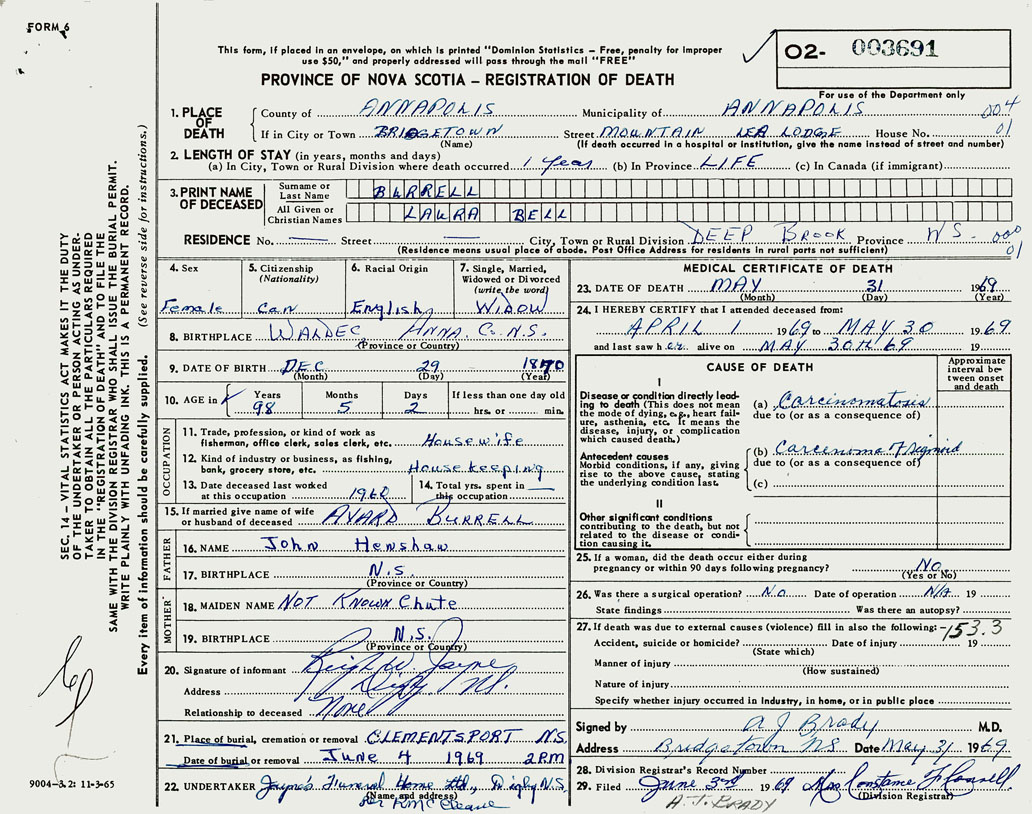 FORM 6
This form, if placed in an envelope, on which is printed "Dominion Statistics – Free, penalty for improper
use $50," and properly addressed will pass through the mail "FREE"
PROVINCE OF NOVA SCOTIA – REGISTRATION OF DEATH
O2- 003691
For use of the Department only
1. PLACE OF DEATH
County of ANNAPOLIS Municipality of ANNAPOLIS 004
If in City or Town BRIDGETOWN Street MOUNTAIN LEA LODGE House No. 01
(Name) (If death occurred in a hospital or institution, give the name instead of street and number)
2. LENGTH OF STAY (in years, months and days)
(a) In City, Town or Rural Division where death occurred 1 year (b) In Province LIFE (c) In Canada (if immigrant)
3. PRINT NAME OF DECEASED
Surname or Last Name BURRELL
All Given or Christian Names LAURA BELL
RESIDENCE No. — Street — City, Town or Rural Division DEEP BROOK Province N.S. 000
01
(Residence means usual place of abode. Post Office Address for residents in rural parts not sufficient)
4. Sex
Female
5. Citizenship (Nationality)
Can
6. Racial Origin
English
7. Single, Married, Widowed or Divorced (write the word)
WIDOW
8. BIRTHPLACE WALDEC ANNA. Co. N.S.
(Province or Country)
9. DATE OF BIRTH DEC 29 1870
(Month) (Day) (Year)
10. AGE in Years 98 Months 5 Days 2 If less than one day old hrs. or min.
OCCUPATION
11. Trade, profession, or kind of work as fisherman, office clerk, sales clerk, etc. Housewife
12. Kind of industry or business, as fishing, bank, grocery store, etc. House keeping
13. Date deceased last worked at this occupation 1960
14. Total yrs. spent in this occupation —
15. If married give name of wife or husband of deceased AVARD BURRELL
FATHER
16. NAME John Henshaw
17. BIRTHPLACE N.S.
(Province or Country)
MOTHER
18. MAIDEN NAME NOT KNOWN Chute
19. BIRTHPLACE N.S.
(Province or Country)
20. Signature of informant Jayne
Address Digby N.S.
Relationship to deceased None
21. Place of burial, cremation or removal CLEMENTSPORT N.S.
Date of burial or removal June 4 1969 2 PM
22. UNDERTAKER Jayne's Funeral Home Ltd., Digby N.S.
(Name and address)
MEDICAL CERTIFICATE OF DEATH
23. DATE OF DEATH MAY 31 1969
(Month) (Day) (Year)
24. I HEREBY CERTIFY that I attended deceased from:
APRIL 1 1969 to MAY 30 1969
and last saw her alive on MAY 30th 69 19
CAUSE OF DEATH
Approximate interval between onset and death
I
Disease or condition directly leading to death (This does not mean the mode of dying, e.g., heart failure, asthenia, etc. It means the disease, injury, or complication which caused death.)
(a) Carcinomatosis
due to (or as a consequence of)
Antecedent causes
Morbid conditions, if any, giving rise to the above cause, stating the underlying condition last.
(b) Carcinoma of sigmoid
due to (or as a consequence of)
(c)
II
Other significant conditions
contributing to the death, but not related to the disease or condition causing it.
25. If a woman, did the death occur either during pregnancy or within 90 days following pregnancy? No
(Yes or No)
26. Was there a surgical operation? No Date of operation N/A 19
State findings Was there an autopsy?
27. If death was due to external causes (violence) fill in also the following: 153.3
Accident, suicide or homicide? Date of injury 19
(State which)
Manner of injury
(How sustained)
Nature of injury
Specify whether injury occurred in Industry, in home, or in public place
Signed by A J Brady M.D.
Address Bridgetown NS Date May 31 1969
28. Division Registrar's Record Number
29. Filed June 3rd 1969 Mrs Constance
(Division Registrar)
A. J. BRADY
SEC. 14 – VITAL STATISTICS ACT MAKES IT THE DUTY
OF THE UNDERTAKER OR PERSON ACTING AS UNDER-
TAKER TO OBTAIN ALL THE PARTICULARS REQUIRED
IN THE "REGISTRATION OF DEATH" AND TO FILE THE
SAME WITH THE DIVISION REGISTRAR WHO SHALL ISSUE THE BURIAL PERMIT.
WRITE PLAINLY WITH UNFADING INK. THIS IS A PERMANENT RECORD.
Every item of information should be carefully supplied. (See reverse side for instructions.)
9004-3.2: 11-3-65